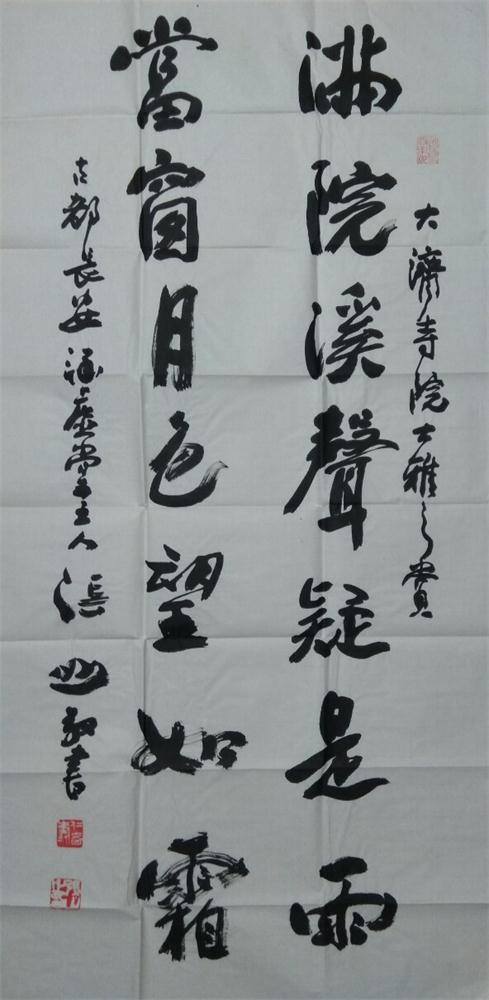 大濟寺院大雅之賞
满院溪聲疑是雨
當窗月色望如霜
古都長安涵虛堂主人張 書